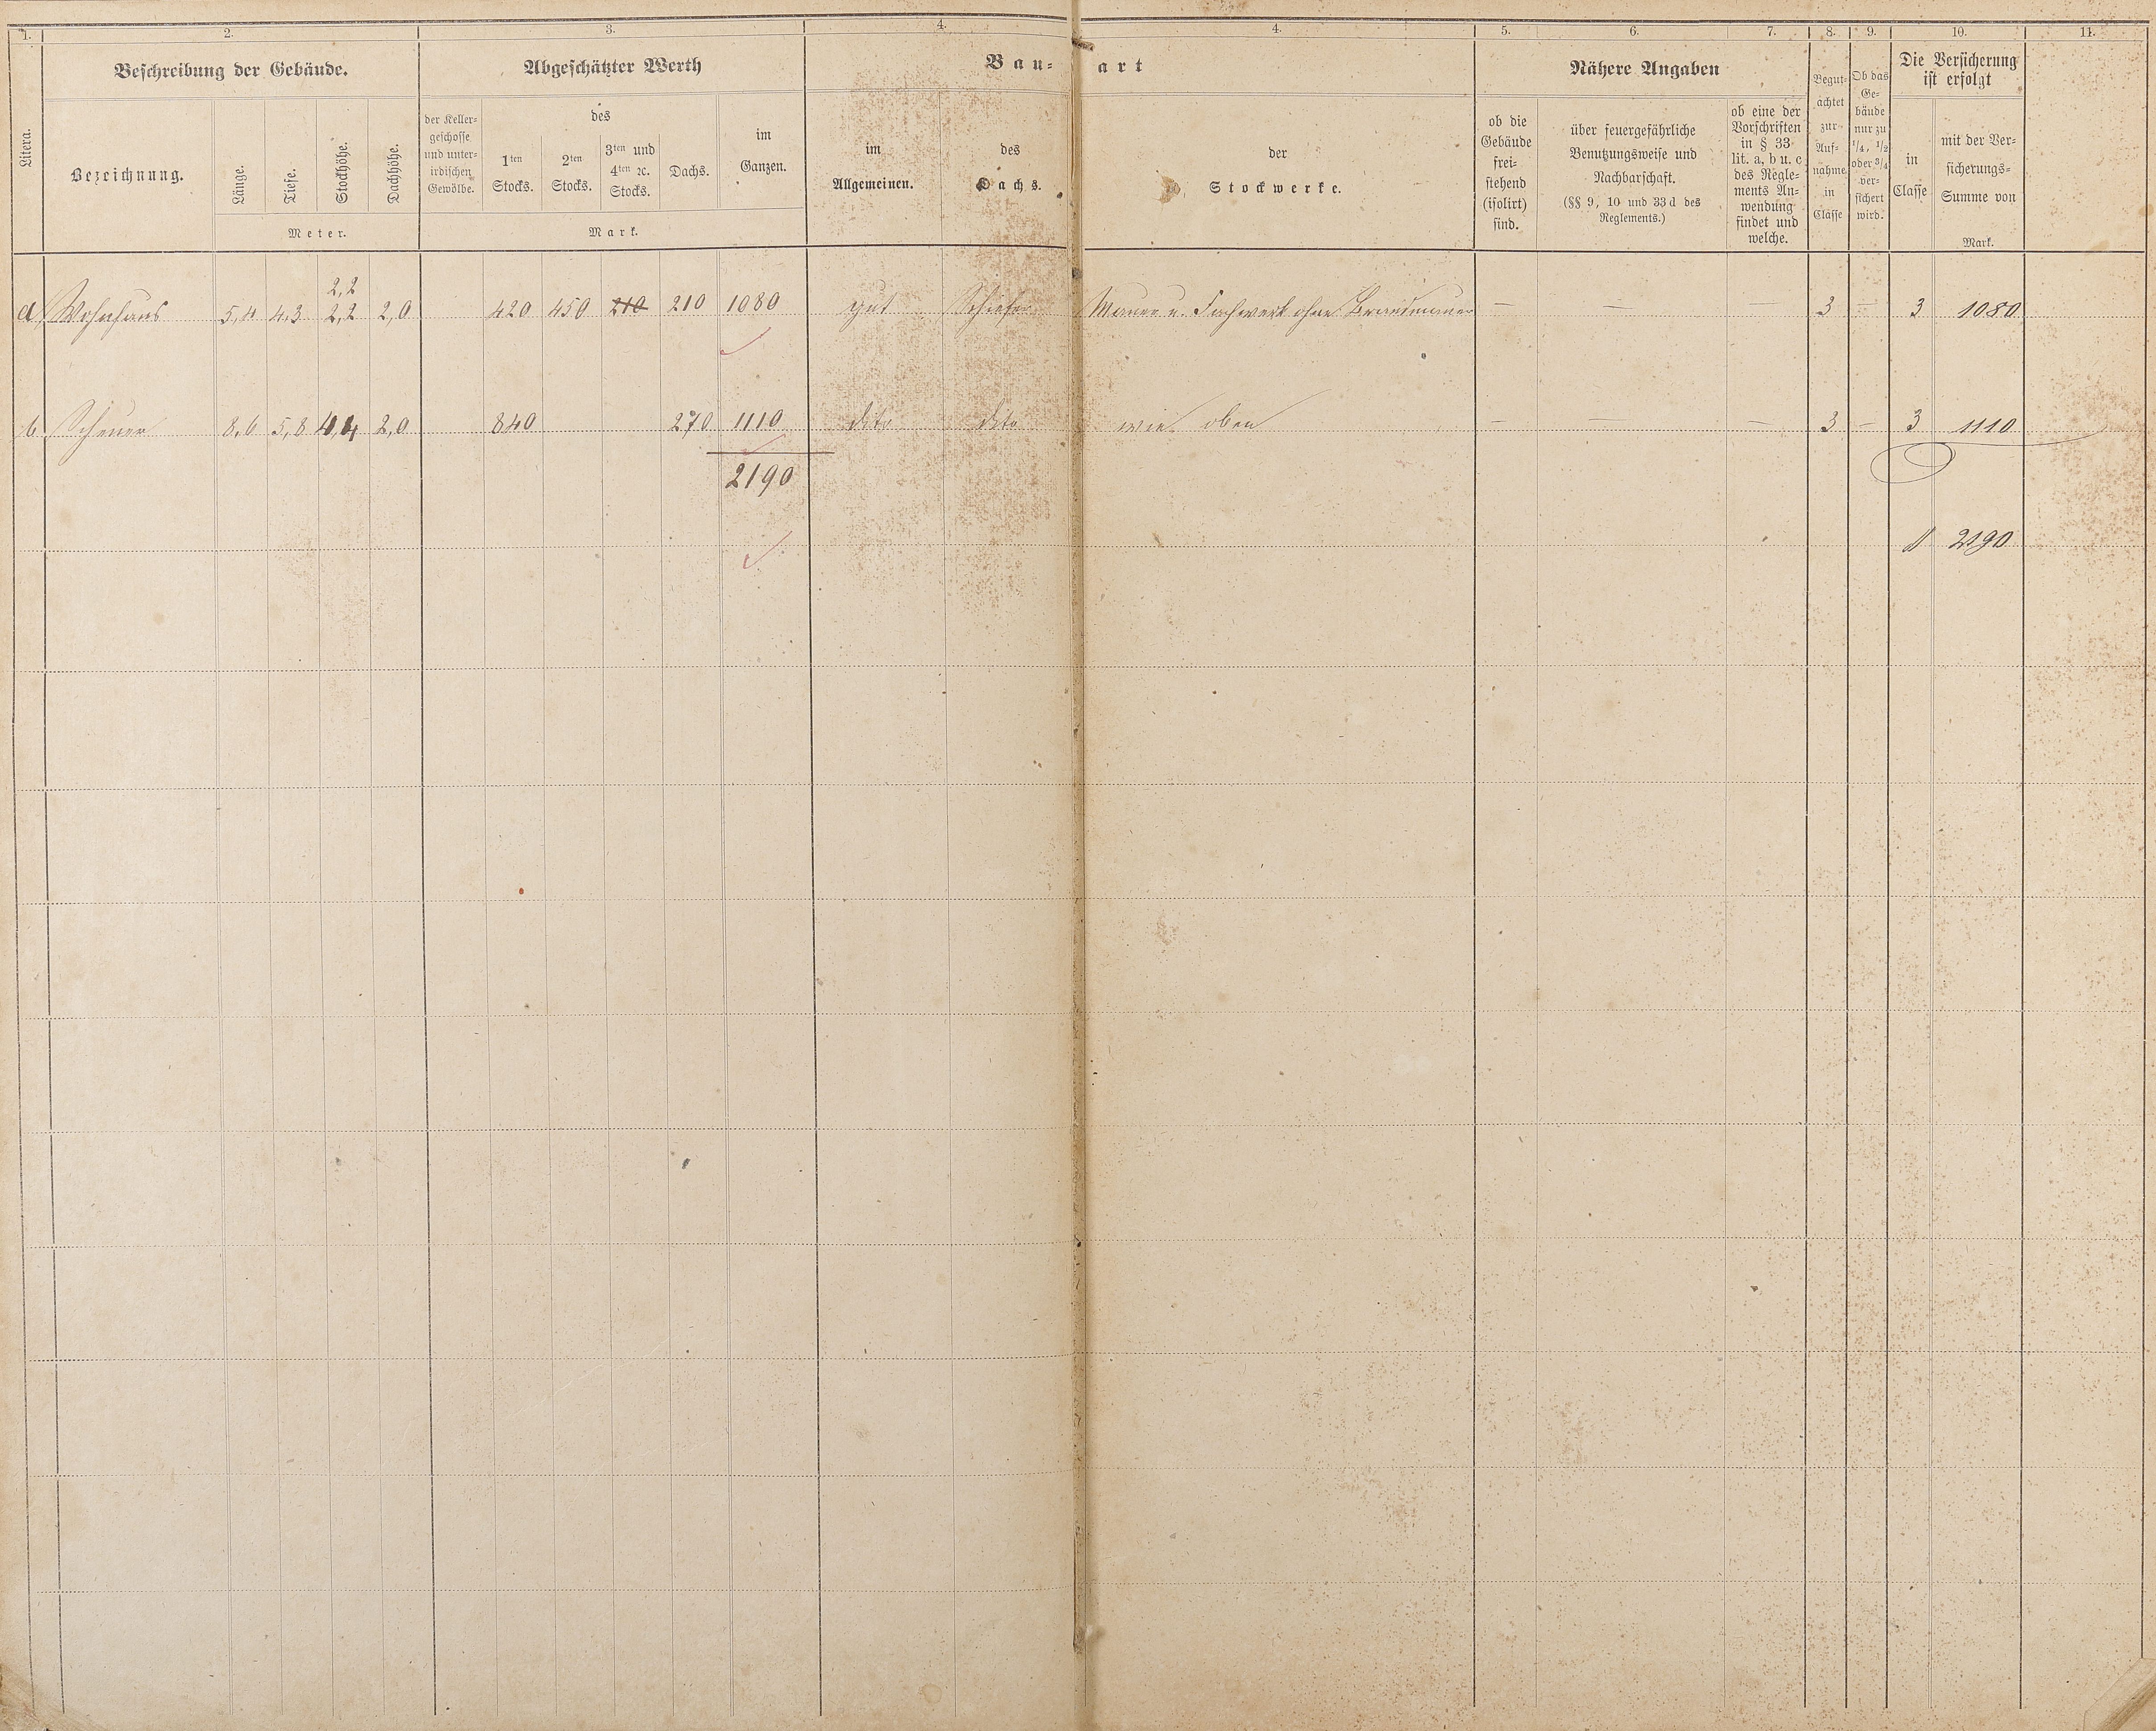 1. 2. 3. 4. 4. 5. 6. 7. 8. 9. 10. 11.
Litera.
Beschreibung der Gebäude.
Bezeichnung.
Länge.
Tiefe.
Stockhöhe.
Dachhöhe.
Meter.
Abgeschätzter Werth
der Keller-
geschosse
und unter-
irdischen
Gewölbe.
des
1ten
Stocks.
2ten
Stocks.
3ten und
4ten ꝛc.
Stocks.
Dachs.
im
Ganzen.
Mark.
Bau-art
im
Allgemeinen.
des
Dachs.
der
Stockwerke.
Nähere Angaben
ob die
Gebäude
frei-
stehend
(isolirt)
sind.
über feuergefährliche
Benutzungsweise und
Nachbarschaft.
(§§ 9, 10 und 33 d des
Reglements.)
ob eine der
Vorschriften
in § 33
lit. a, b u. c
des Regle-
ments An-
wendung
findet und
welche.
Begut-
achtet
zur
Auf-
nahme
in
Classe
Ob das
Ge-
bäude
nur zu
1/4, 1/2
oder 3/4
ver-
sichert
wird.
Die Versicherung
ist erfolgt
in
Classe
mit der Ver-
sicherungs-
Summe von
Mark.
2,2
a Wohnhaus 5,4 4,3 2,2 2,0 420 450 210 210 1080 gut Schiefer Mauer u. Fachwerk ohne Brandmauer — — — 3 — 3 1080
b Scheuer 8,6 5,8 4,4 2,0 840 270 1110 dito dito wie oben — — — 3 — 3 1110
2190
2190